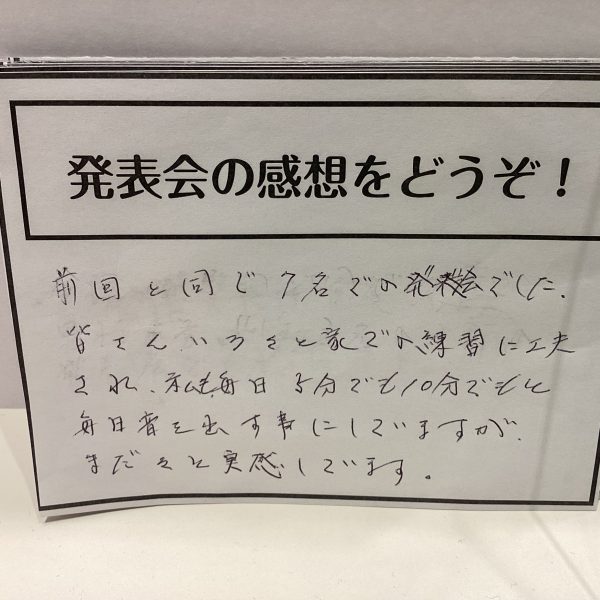 発表会の感想をどうぞ！
前回と同じ7名での発表会でした、
皆さんいろいろと家での練習に工夫
され、私も毎日5分でも10分でもと
毎日音を出す事にしていますが、
まだまだと実感しています。